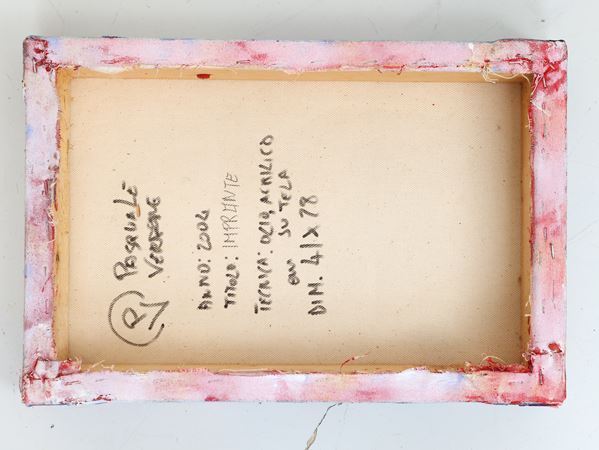 PV
PASQUALE
VERDONE
ANNO: 2004
TITOLO: IMPRONTE
TECNICA: OLIO, ACRILICO
SU TELA
DIM. 41X78